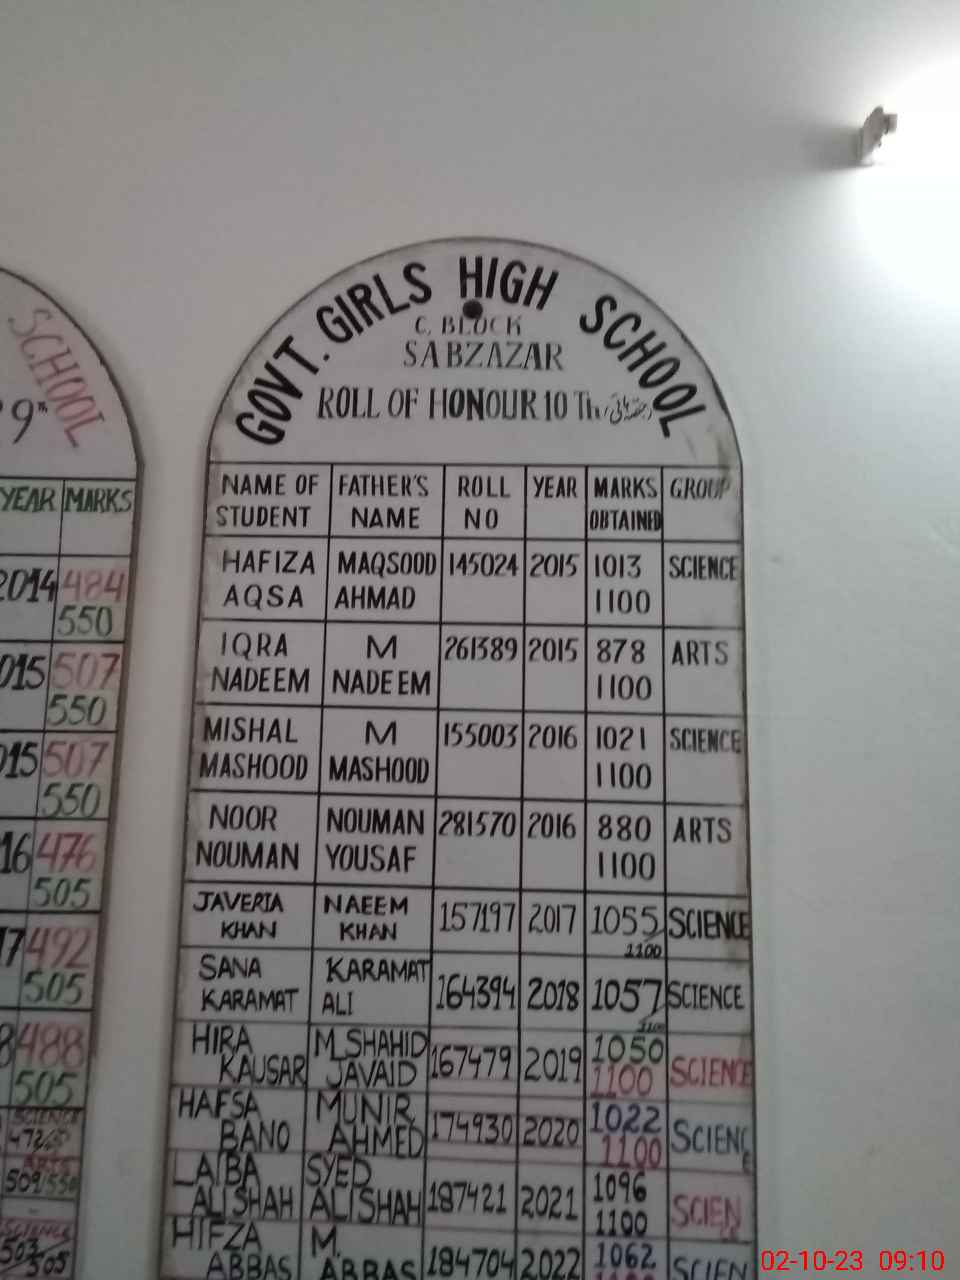 SCHOOL
9th
YEAR MARKS
2014 484
550
015 507
550
015 507
550
16 476
505
17 492
505
8 488
505
SCIENCE
ARTS
509/550
SCIENCE
503/505
GOVT. GIRLS HIGH SCHOOL
C. BLOCK
SABZAZAR
ROLL OF HONOUR 10 Th
NAME OF FATHER'S ROLL YEAR MARKS GROUP
STUDENT NAME NO OBTAINED
HAFIZA MAQSOOD 145024 2015 1013 SCIENCE
AQSA AHMAD 1100
IQRA M 261389 2015 878 ARTS
NADEEM NADEEM 1100
MISHAL M 155003 2016 1021 SCIENCE
MASHOOD MASHOOD 1100
NOOR NOUMAN 281570 2016 880 ARTS
NOUMAN YOUSAF 1100
JAVERIA NAEEM 157197 2017 1055 SCIENCE
KHAN KHAN 1100
SANA KARAMAT 164394 2018 1057 SCIENCE
KARAMAT ALI 1100
HIRA M.SHAHID 167479 2019 1050 SCIENCE
KAUSAR JAVAID 1100
HAFSA MUNIR 174930 2020 1022 SCIENCE
BANO AHMED 1100
LAIBA SYED 187421 2021 1096 SCIEN
ALI SHAH ALI SHAH 1100
HIFZA M. 184704 2022 1062 SCIEN
ABBAS ABBAS
02-10-23 09:10